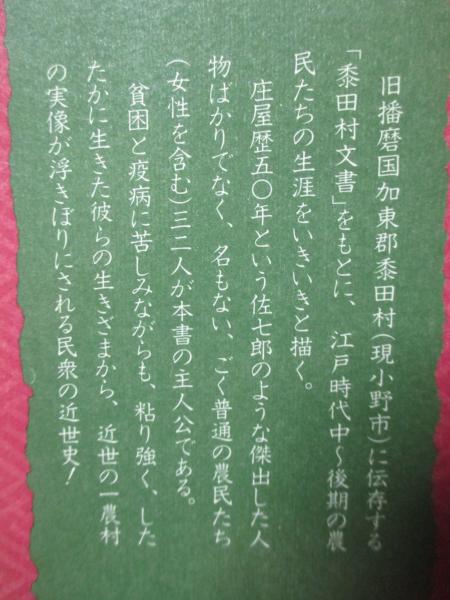 旧播磨国加東郡黍田村(現小野市)に伝存する
「黍田村文書」をもとに、江戸時代中〜後期の農
民たちの生涯をいきいきと描く。
庄屋歴五〇年という佐七郎のような傑出した人
物ばかりでなく、名もない、ごく普通の農民たち
(女性を含む)三二人が本書の主人公である。
貧困と疫病に苦しみながらも、粘り強く、した
たかに生きた彼らの生きざまから、近世の一農村
の実像が浮きぼりにされる民衆の近世史!